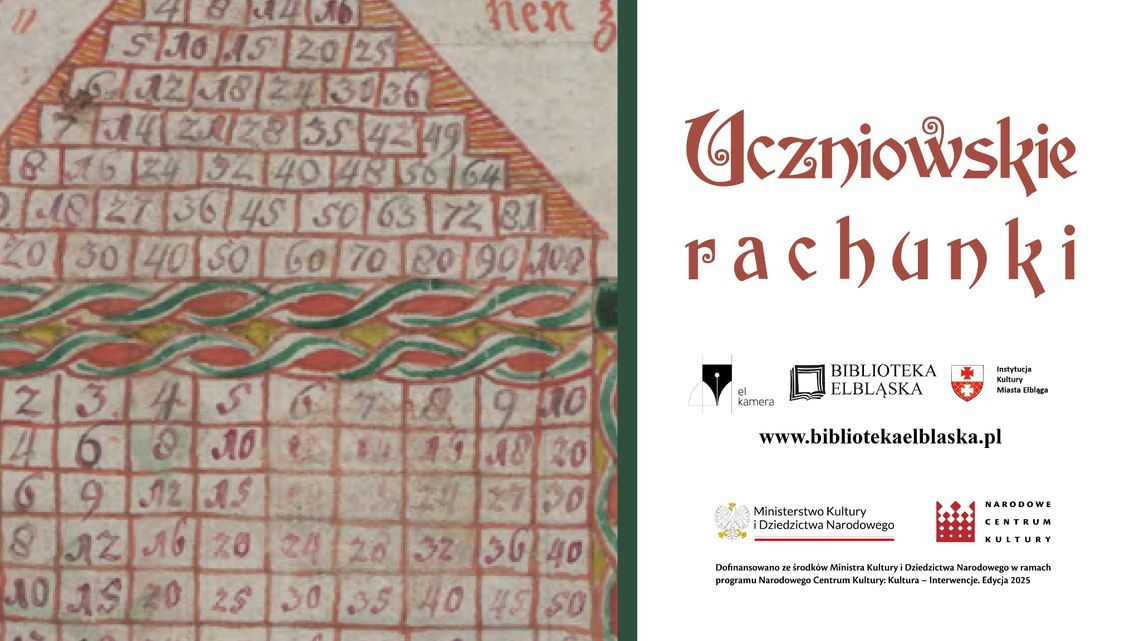 nen z
4 8 14 16
5 10 15 20 25
6 12 18 24 30 36
7 14 21 28 35 42 49
8 16 24 32 40 48 56 64
18 27 36 45 50 63 72 81
20 30 40 50 60 70 80 90 100
2 3 4 5 6 7 8 9 10
4 6 8 10 12 14 18 20
6 9 12 15 24 27 30
8 12 16 20 24 28 32 36 40
10 15 20 25 30 35 40 45 50
Uczniowskie
rachunki
el
kamera
BIBLIOTEKA
ELBLĄSKA
Instytucja
Kultury
Miasta Elbląga
www.bibliotekaelblaska.pl
Ministerstwo Kultury
i Dziedzictwa Narodowego
NARODOWE
CENTRUM
KULTURY
Dofinansowano ze środków Ministra Kultury i Dziedzictwa Narodowego w ramach
programu Narodowego Centrum Kultury: Kultura – Interwencje. Edycja 2025